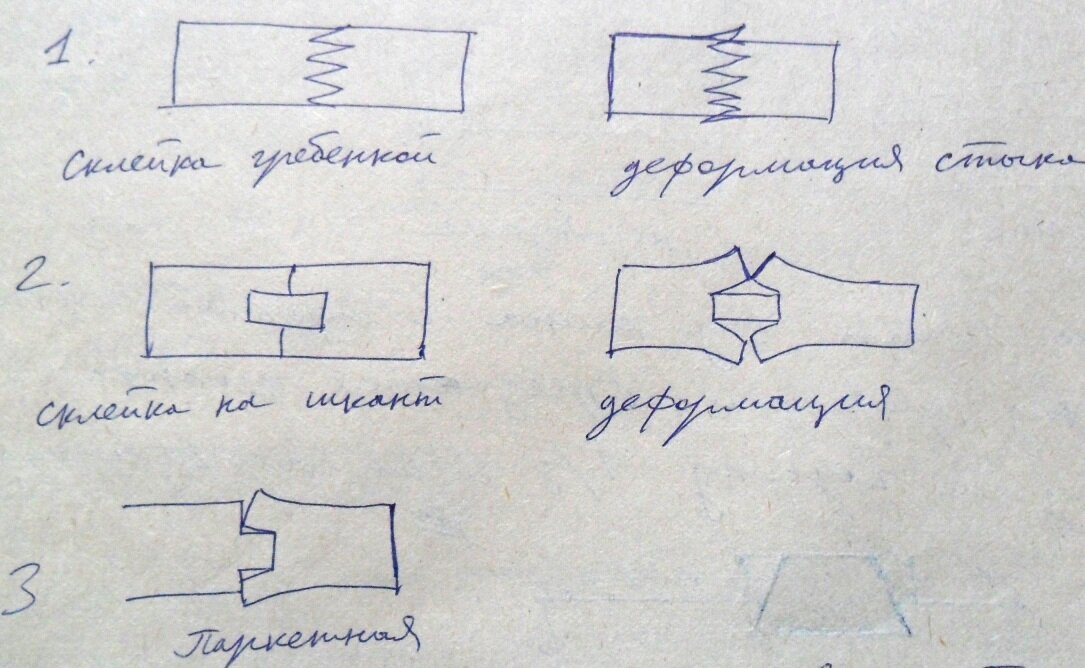 1.
склейка гребенкой
деформация стыка
2.
склейка на шкант
деформация
3
Паркетная